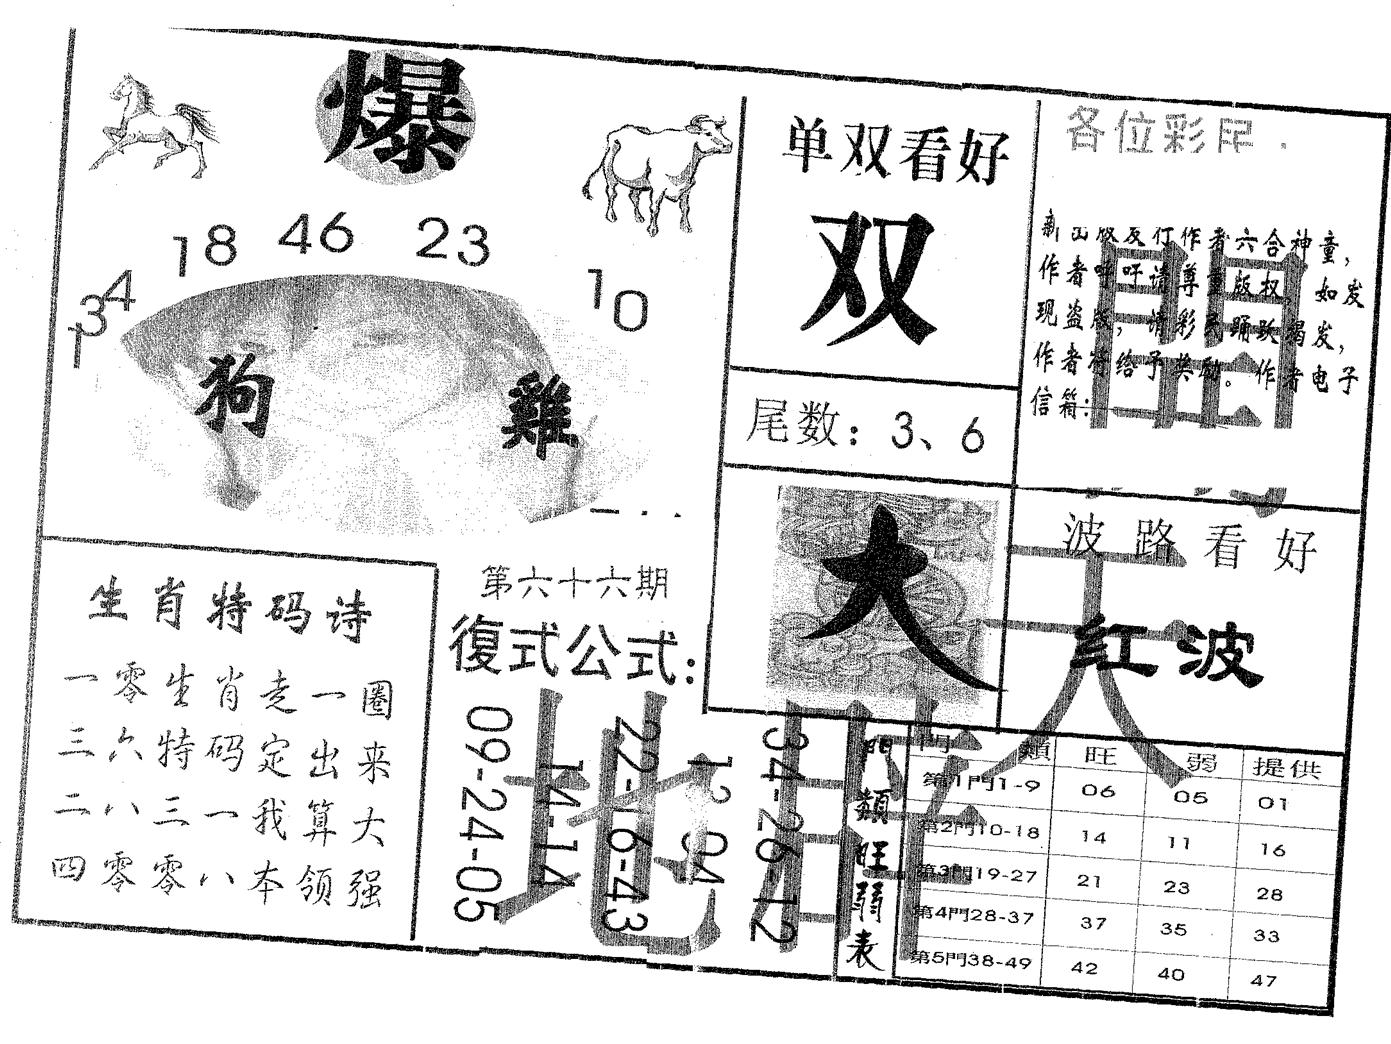 爆
18 46 23
34
10
1
狗
雞
单双看好
双
尾数：3、6
大
各位彩民
新出版发行作者六合神童，
作者呼吁请尊重版权，如发
现盗版，请彩民踊跃揭发，
作者将给予奖励。作者电子
信箱：
波路看好
紅波
生肖特码诗
一零生肖走一圈
三六特码定出来
二八三一我算大
四零零八本领强
第六十六期
復式公式：
09-24-05
14-14
22-16-43
12 04
34-26-12
門類旺弱表
門類 旺 弱 提供
第1門1-9 06 05 01
第2門10-18 14 11 16
第3門19-27 21 23 28
第4門28-37 37 35 33
第5門38-49 42 40 47